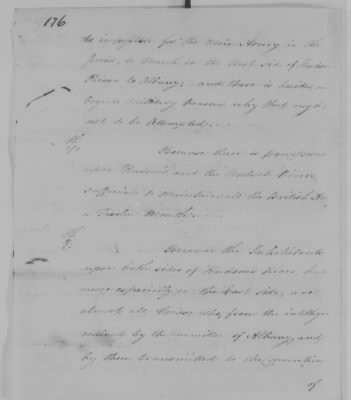 176
impossible for the main Army in the
to march on the West side of Hudsons
River to Albany; and there is besides, a
military reason why that ought
not to be Attempted.
7.
Because there is provisions
upon Hudsons, and the Mohock River,
sufficient to maintain all the British
a Twelve Month.
8.
Because the Inhabitants
upon both sides of Hudsons River, but
more especially on the East side, are
almost all Tories, who, from the intellige
received by the Committee of Albany, and
by them transmitted to the Convention
of